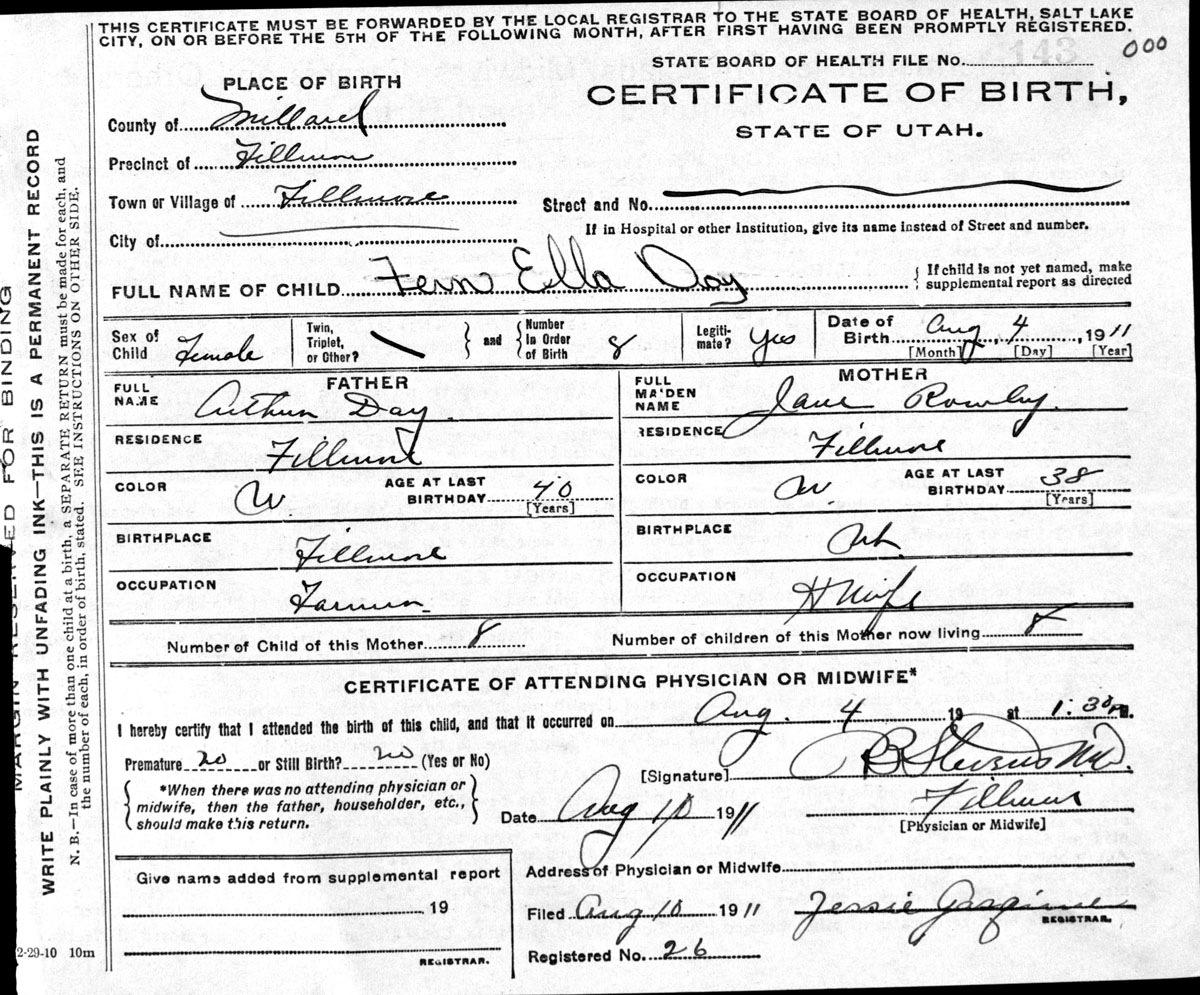 THIS CERTIFICATE MUST BE FORWARDED BY THE LOCAL REGISTRAR TO THE STATE BOARD OF HEALTH, SALT LAKE
CITY, ON OR BEFORE THE 5TH OF THE FOLLOWING MONTH, AFTER FIRST HAVING BEEN PROMPTLY REGISTERED.
000
STATE BOARD OF HEALTH FILE No. 143
CERTIFICATE OF BIRTH,
STATE OF UTAH.
PLACE OF BIRTH
County of Millard
Precinct of Fillmore
Town or Village of Fillmore
Street and No.
City of
If in Hospital or other Institution, give its name instead of Street and number.
FULL NAME OF CHILD Fern Ella Day
If child is not yet named, make
supplemental report as directed
Sex of Child Female
Twin, Triplet, or Other?
and
Number In Order of Birth 8
Legiti-mate? Yes
Date of Birth Aug 4, 1911
[Month] [Day] [Year]
FATHER
FULL NAME Arthur Day
RESIDENCE Fillmore
COLOR W
AGE AT LAST BIRTHDAY 40
[Years]
BIRTHPLACE Fillmore
OCCUPATION Farmer
MOTHER
FULL MAIDEN NAME Jane Rowley
RESIDENCE Fillmore
COLOR W
AGE AT LAST BIRTHDAY 38
[Years]
BIRTHPLACE
OCCUPATION H Wife
Number of Child of this Mother 8
Number of children of this Mother now living 8
CERTIFICATE OF ATTENDING PHYSICIAN OR MIDWIFE*
I hereby certify that I attended the birth of this child, and that it occurred on Aug. 4 19 at 1:30 P.M.
Premature no or Still Birth? no (Yes or No)
[Signature] Stevens M.D.
*When there was no attending physician or
midwife, then the father, householder, etc.,
should make this return.
Date Aug 10 1911
Fillmore
[Physician or Midwife]
Address of Physician or Midwife
Filed Aug 10 1911 Jessie
REGISTRAR.
Registered No. 26
Give name added from supplemental report
19
REGISTRAR.
2-29-10 10m
MARGIN RESERVED FOR BINDING
WRITE PLAINLY WITH UNFADING INK—THIS IS A PERMANENT RECORD
N. B.—In case of more than one child at a birth, a SEPARATE RETURN must be made for each, and
the number of each, in order of birth, stated. SEE INSTRUCTIONS ON OTHER SIDE.